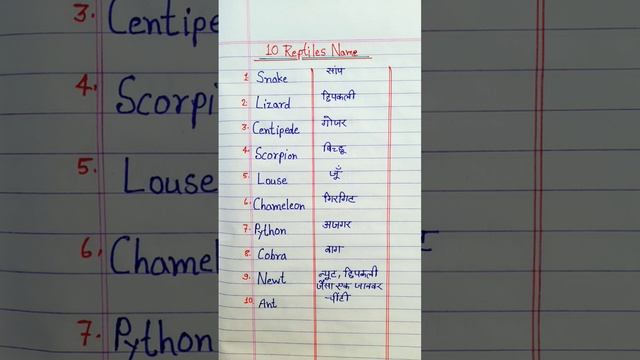 10 Reptiles Name
1. Snake सांप
2. Lizard छिपकली
3. Centipede गोजर
4. Scorpion बिच्छू
5. Louse जूँ
6. Chameleon गिरगिट
7. Python अजगर
8. Cobra नाग
9. Newt न्यूट, छिपकली
जैसा एक जानवर
10. Ant चींटी
3. Centipe
4. Scorpi
5. Louse
6. Chamel
7. Python